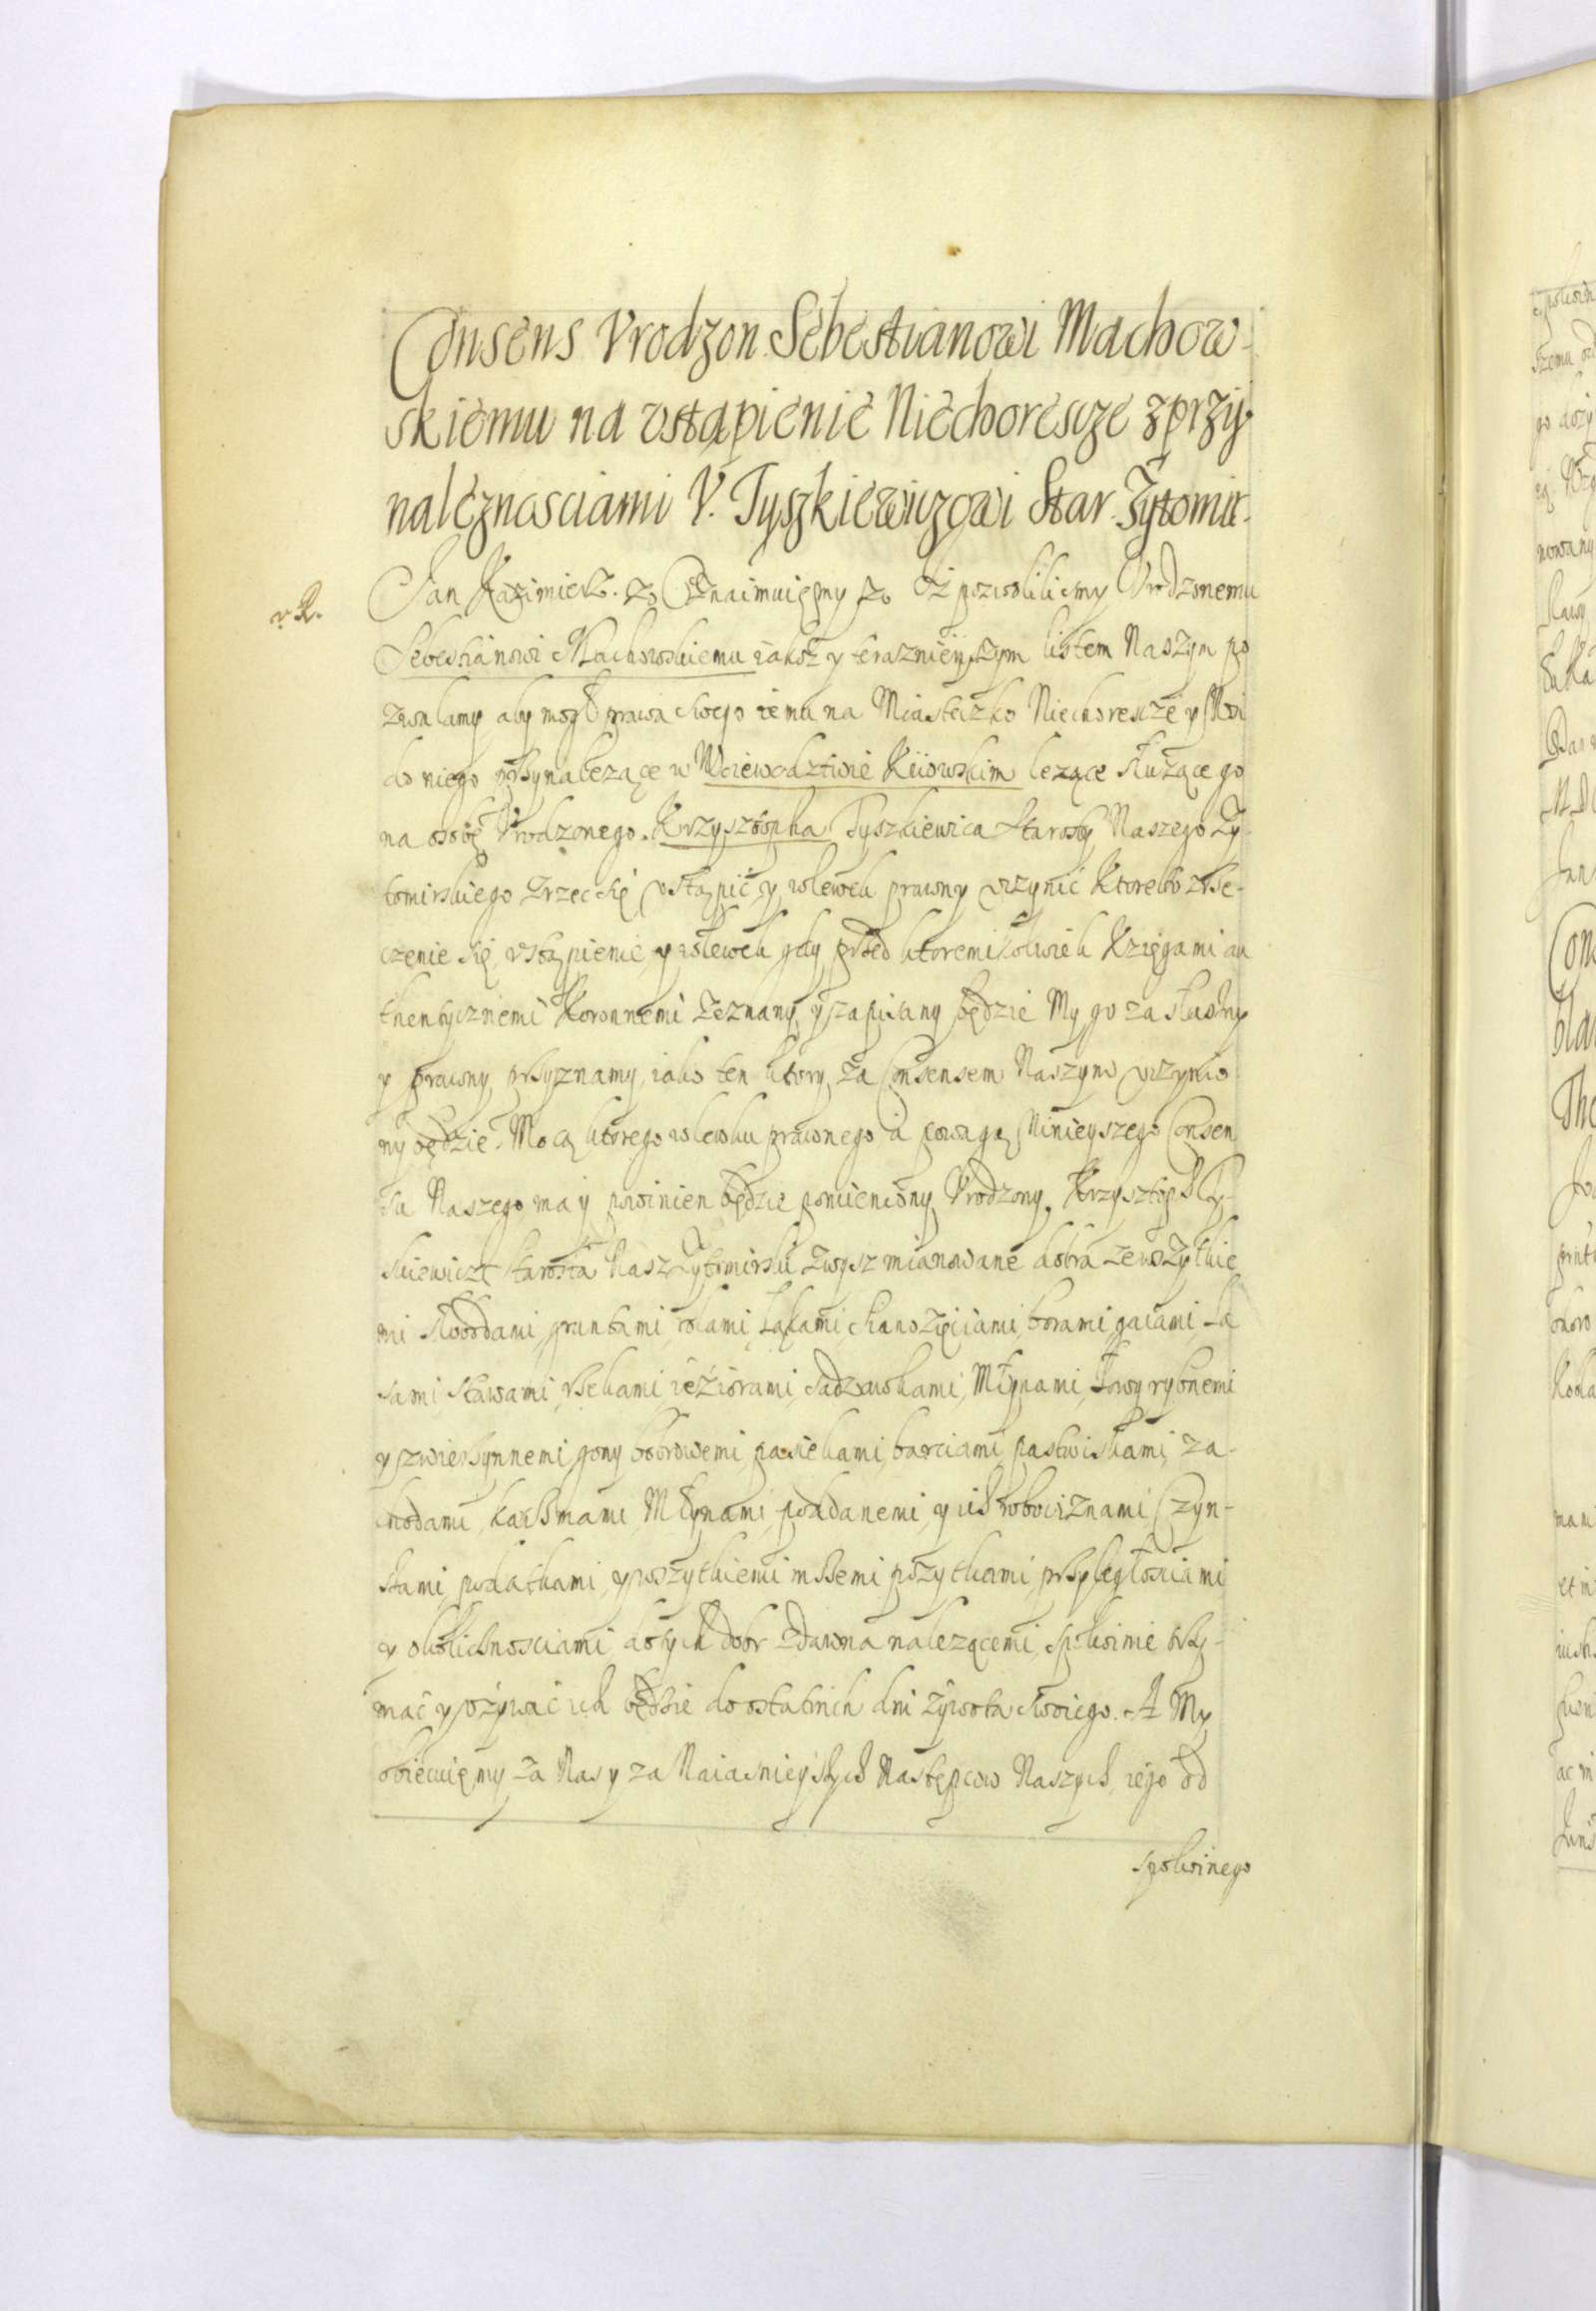 Consens Vrodzon. Sebestianowi Machow-
skiemu na vstąpienie Niechorescze z przy-
naleznosciami V. Tyszkiewiczowi Star. Zytomir.
Jan Kazimierz. Oznaimuięmy Iż pozwolilismy Vrodzonemu
Sebestianowi Machowskiemu iakoż y teraznieyszym listem Naszym po
zwalamy aby mogł prawa swego iemu na Miasteczko Niechorescze y Wsi
do niego przynalezące w Woiewodztwie Kiiowskim lezące słuzącego
na osobę Vrodzonego Krzysztopha Tyszkiewica Starosty Naszego Zy-
tomirskiego zrzec się vstąpić y wlewek prawny vczynić Ktore to zrze-
czenie się, vstąpienie y wlewek gdy przed ktoremi kolwiek Xzięgami au
thentycznemi Koronnemi zeznany y zapisany będzie My go za słuszny
y prawny przyznamy, iako ten ktory za Consensem Naszym vczynio
ny będzie. Mocą ktorego wlewku prawnego a powagą Ninieyszego Consen
su Naszego ma y powinien będzie pomieniony Vrodzony Krzysztoph Ty-
skiewicz Starosta Nasz Zytomirski zwysz mianowane dobra ze wszytkie
mi Folwarkami gruntami, rolami, łąkami, sianozęciami, borami, gaiami, la
sami stawami, rzekami ieziorami, sadzawkami, Młynami, Łowy rybnemi
y zwierzynnemi, gony bobrowemi, pasiekami, barciami pastwiskami, za-
chodami, karczmami, Młynami, poddanemi, y ich robociznami, Czyn-
szami, podatkami, y wszytkiemi inszemi pozytkami, przyległosciami
y okolicznosciami do tych dobr zdawna nalezącemi, spokoinie trzy-
mać y vzywać ich będzie do ostatnich dni zywota swoiego. A My
obiecuięmy za Nas y za Naiasnieyszych Nastęmpcow Naszych, iego od
spokoinego